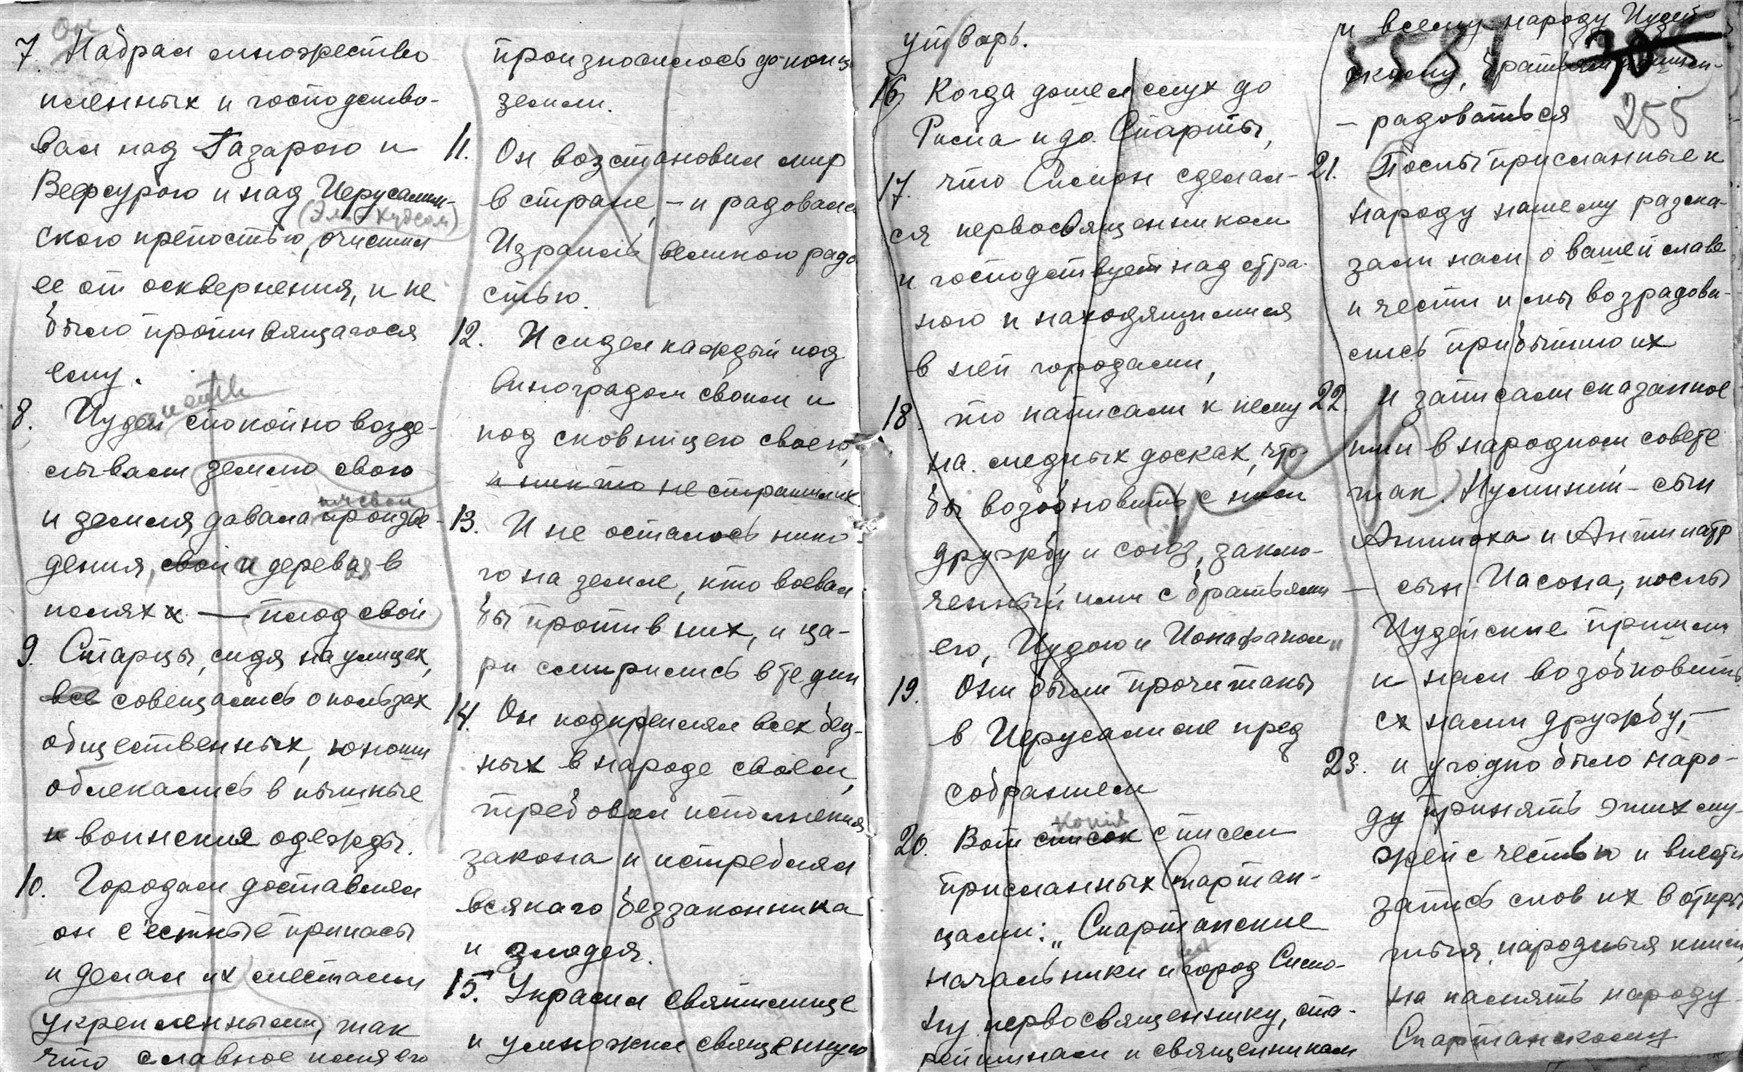 Он
7. Набрал множество
пленных и господство-
вал над Газарою и
Вефсурою и над Иерусалим-
(Эль-Кудсом)
ского крепостью, очистил
ее от осквернения, и не
было противящагося
ему.
8. Иудеи спокойно возде-
лывали землю свою
и земля давала произве-
дения, свои и дерева в
полях — плод свой
9. Старцы, сидя на улицах,
все совещались о пользах
общественных, юноши
облекались в пышные
и воинския одежды.
10. Городам доставлял
он съестные припасы
и делал их местами
укрепленными, так
что славное имя его
произносилось до конца
земли.
11. Он возстановил мир
в стране, – и радовался
Израиль великою радо
стью.
12. И сидел каждый под
виноградом своим и
под сковницею своею,
и никто не страшил их
13. И не осталось нико-
го на земле, кто воевал
бы против них, и ца-
ри смирились в те дни
14. Он подкреплял всех бед-
ных в народе своем,
требовал исполнения
закона и истреблял
всякаго беззаконника
и злодея.
15. Украсил святилище
и умножил священную
утварь.
16. Когда дошел слух до
Рима и до Спарты,
17. что Симон сделал-
ся первосвященником
и господствует над стра-
ною и находящимися
в ней городами,
18. то написали к нему
на медных досках, что-
бы возобновить с ним
дружбу и союз, заклю-
ченный ими с братьями
его, Иудою и Ионафаном
19. Они были прочитаны
в Иерусалиме пред
собранием
копия
20. Вот список с писем
присланных Спартан-
цами: „Спартанские
начальники и город Симо-
ну первосвященнику, ста-
рейшинам и священникам
и всему народу Иудей-
5581 305
скому, братьям нашим-
– радоваться 255
21. Послы присланные к
народу нашему разска-
зали нам о вашей славе
и чести и мы возрадова-
лись прибытию их
22. и записали сказанное
ими в народном совете
так. Нуминий – сын
Антиоха и Антипатр
– сын Иасона, послы
Иудейские пришли
к нам возобновить
с нами дружбу, –
23. и угодно было наро-
ду принять этих му-
жей с честью и внести
запись слов их в откры
тыя народныя книги,
на память народу
Спартанскому